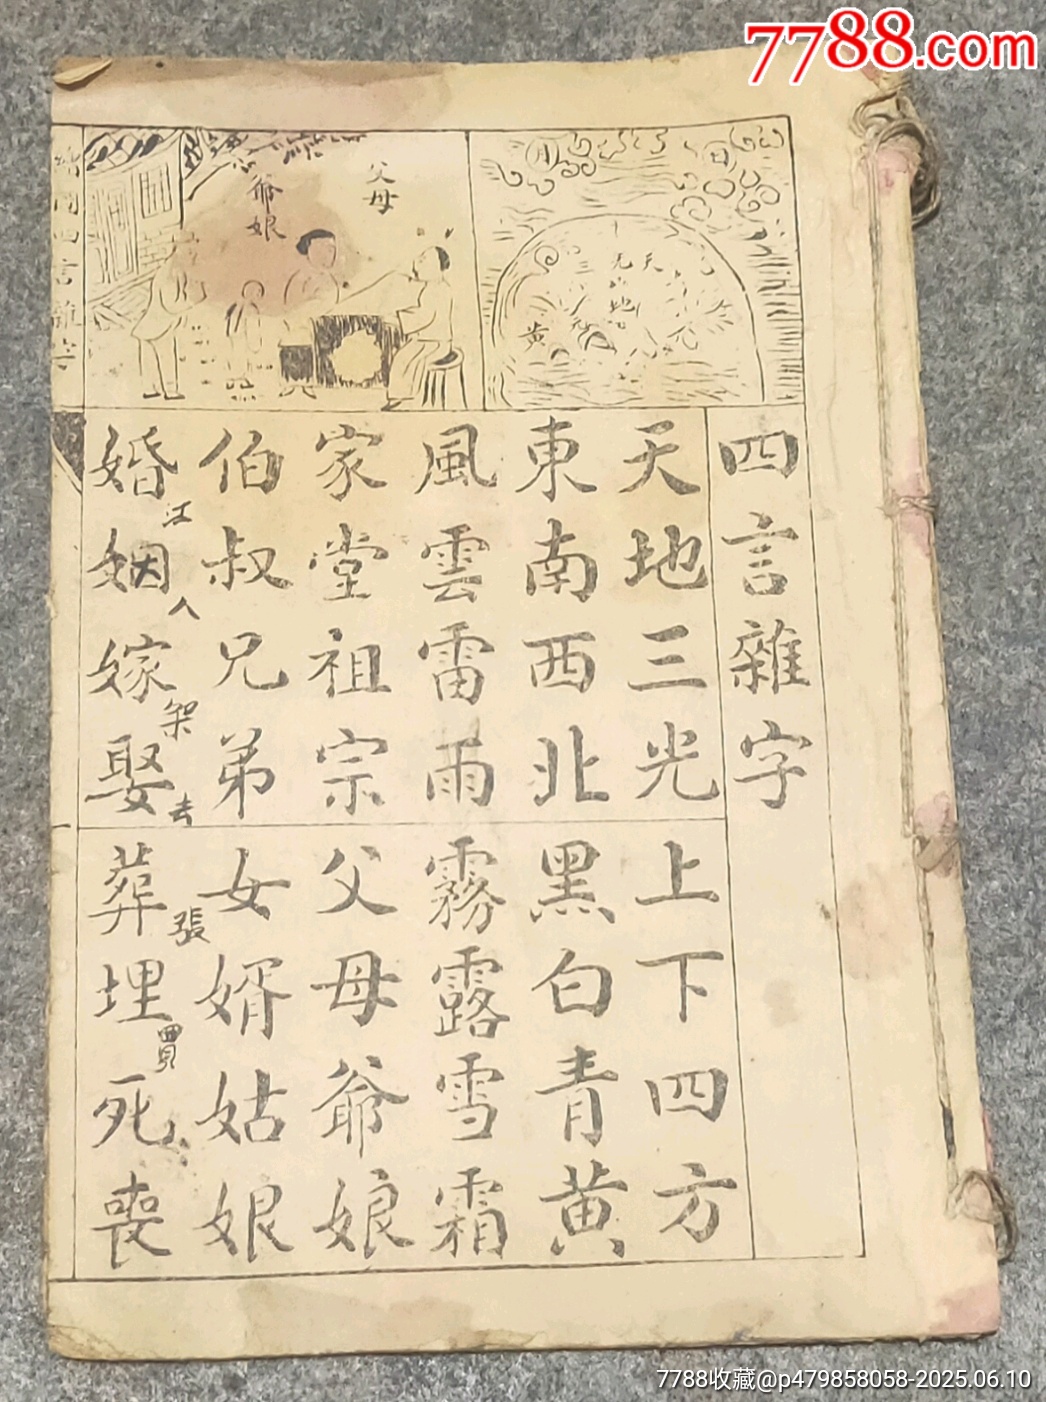 7788.com
四言雜字
天地三光
上下四方
東南西北
黑白青黃
風雲雷雨
霧露雪霜
家堂祖宗
父母爺娘
伯叔兄弟
女婿姑娘
婚姻嫁娶
葬埋死喪
江
人
架
去
張
買
月
日
天
元
三
地
黃
父母
爺娘
7788收藏@p479858058-2025.06.10